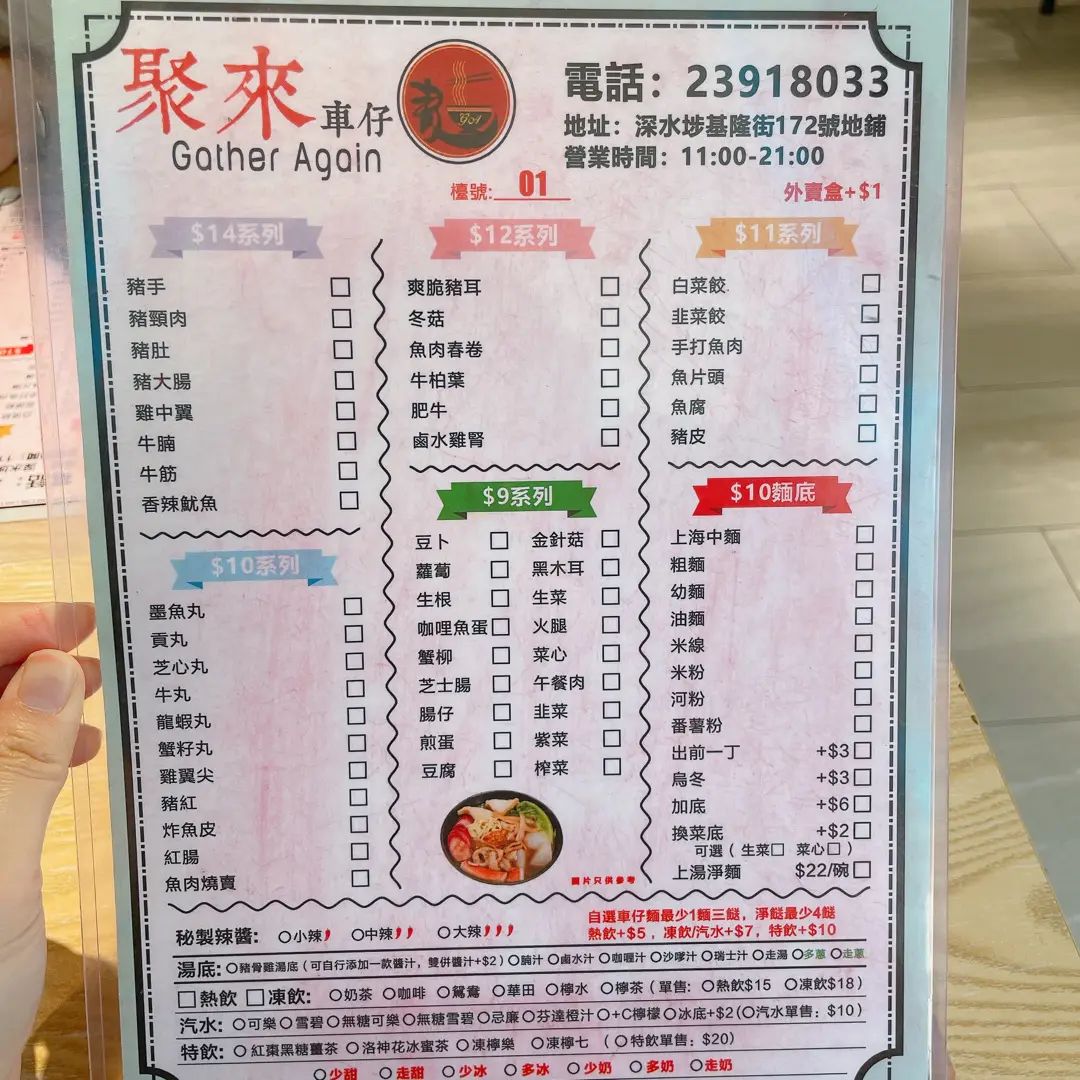 聚來車仔
Gather Again
電話：23918033
地址：深水埗基隆街172號地鋪
營業時間：11:00-21:00
檯號: 01
外賣盒+$1
$14系列
豬手
豬頸肉
豬肚
豬大腸
雞中翼
牛腩
牛筋
香辣魷魚
$10系列
墨魚丸
貢丸
芝心丸
牛丸
龍蝦丸
蟹籽丸
雞翼尖
豬紅
炸魚皮
紅腸
魚肉燒賣
$12系列
爽脆豬耳
冬菇
魚肉春卷
牛柏葉
肥牛
鹵水雞腎
$9系列
豆卜 金針菇
蘿蔔 黑木耳
生根 生菜
咖哩魚蛋 火腿
蟹柳 菜心
芝士腸 午餐肉
腸仔 韭菜
煎蛋 紫菜
豆腐 榨菜
圖片只供參考
$11系列
白菜餃
韭菜餃
手打魚肉
魚片頭
魚腐
豬皮
$10麵底
上海中麵
粗麵
幼麵
油麵
米線
米粉
河粉
番薯粉
出前一丁 +$3
烏冬 +$3
加底 +$6
換菜底 +$2
可選（生菜 菜心）
上湯淨麵 $22/碗
秘製辣醬: 小辣 中辣 大辣
自選車仔麵最少1麵三餸，淨餸最少4餸
熱飲+$5，凍飲/汽水+$7，特飲+$10
湯底: 豬骨雞湯底（可自行添加一款醬汁，雙併醬汁+$2） 腩汁 鹵水汁 咖喱汁 沙嗲汁 瑞士汁 走湯 多蔥 走蔥
熱飲 凍飲: 奶茶 咖啡 鴛鴦 華田 檸水 檸茶（單售: 熱飲$15 凍飲$18）
汽水: 可樂 雪碧 無糖可樂 無糖雪碧 忌廉 芬達橙汁 +C檸檬 冰底+$2(汽水單售: $10)
特飲: 紅棗黑糖薑茶 洛神花冰蜜茶 凍檸樂 凍檸七 (特飲單售: $20)
少甜 走甜 少冰 多冰 少奶 多奶 走奶